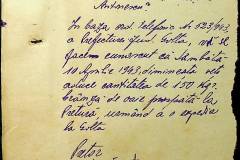 Antonescu"
In baza ord. telefonic No 823/943
a Prefecturei Jud. Golta, vă
facem cunoscut că Sâmbătă
10 Aprilie 1943, dimineața
aduce cantitatea de 150 kgr.
brânză de oaie proaspătă la
Pretură, urmând a o expedia
la Golta
Pretor